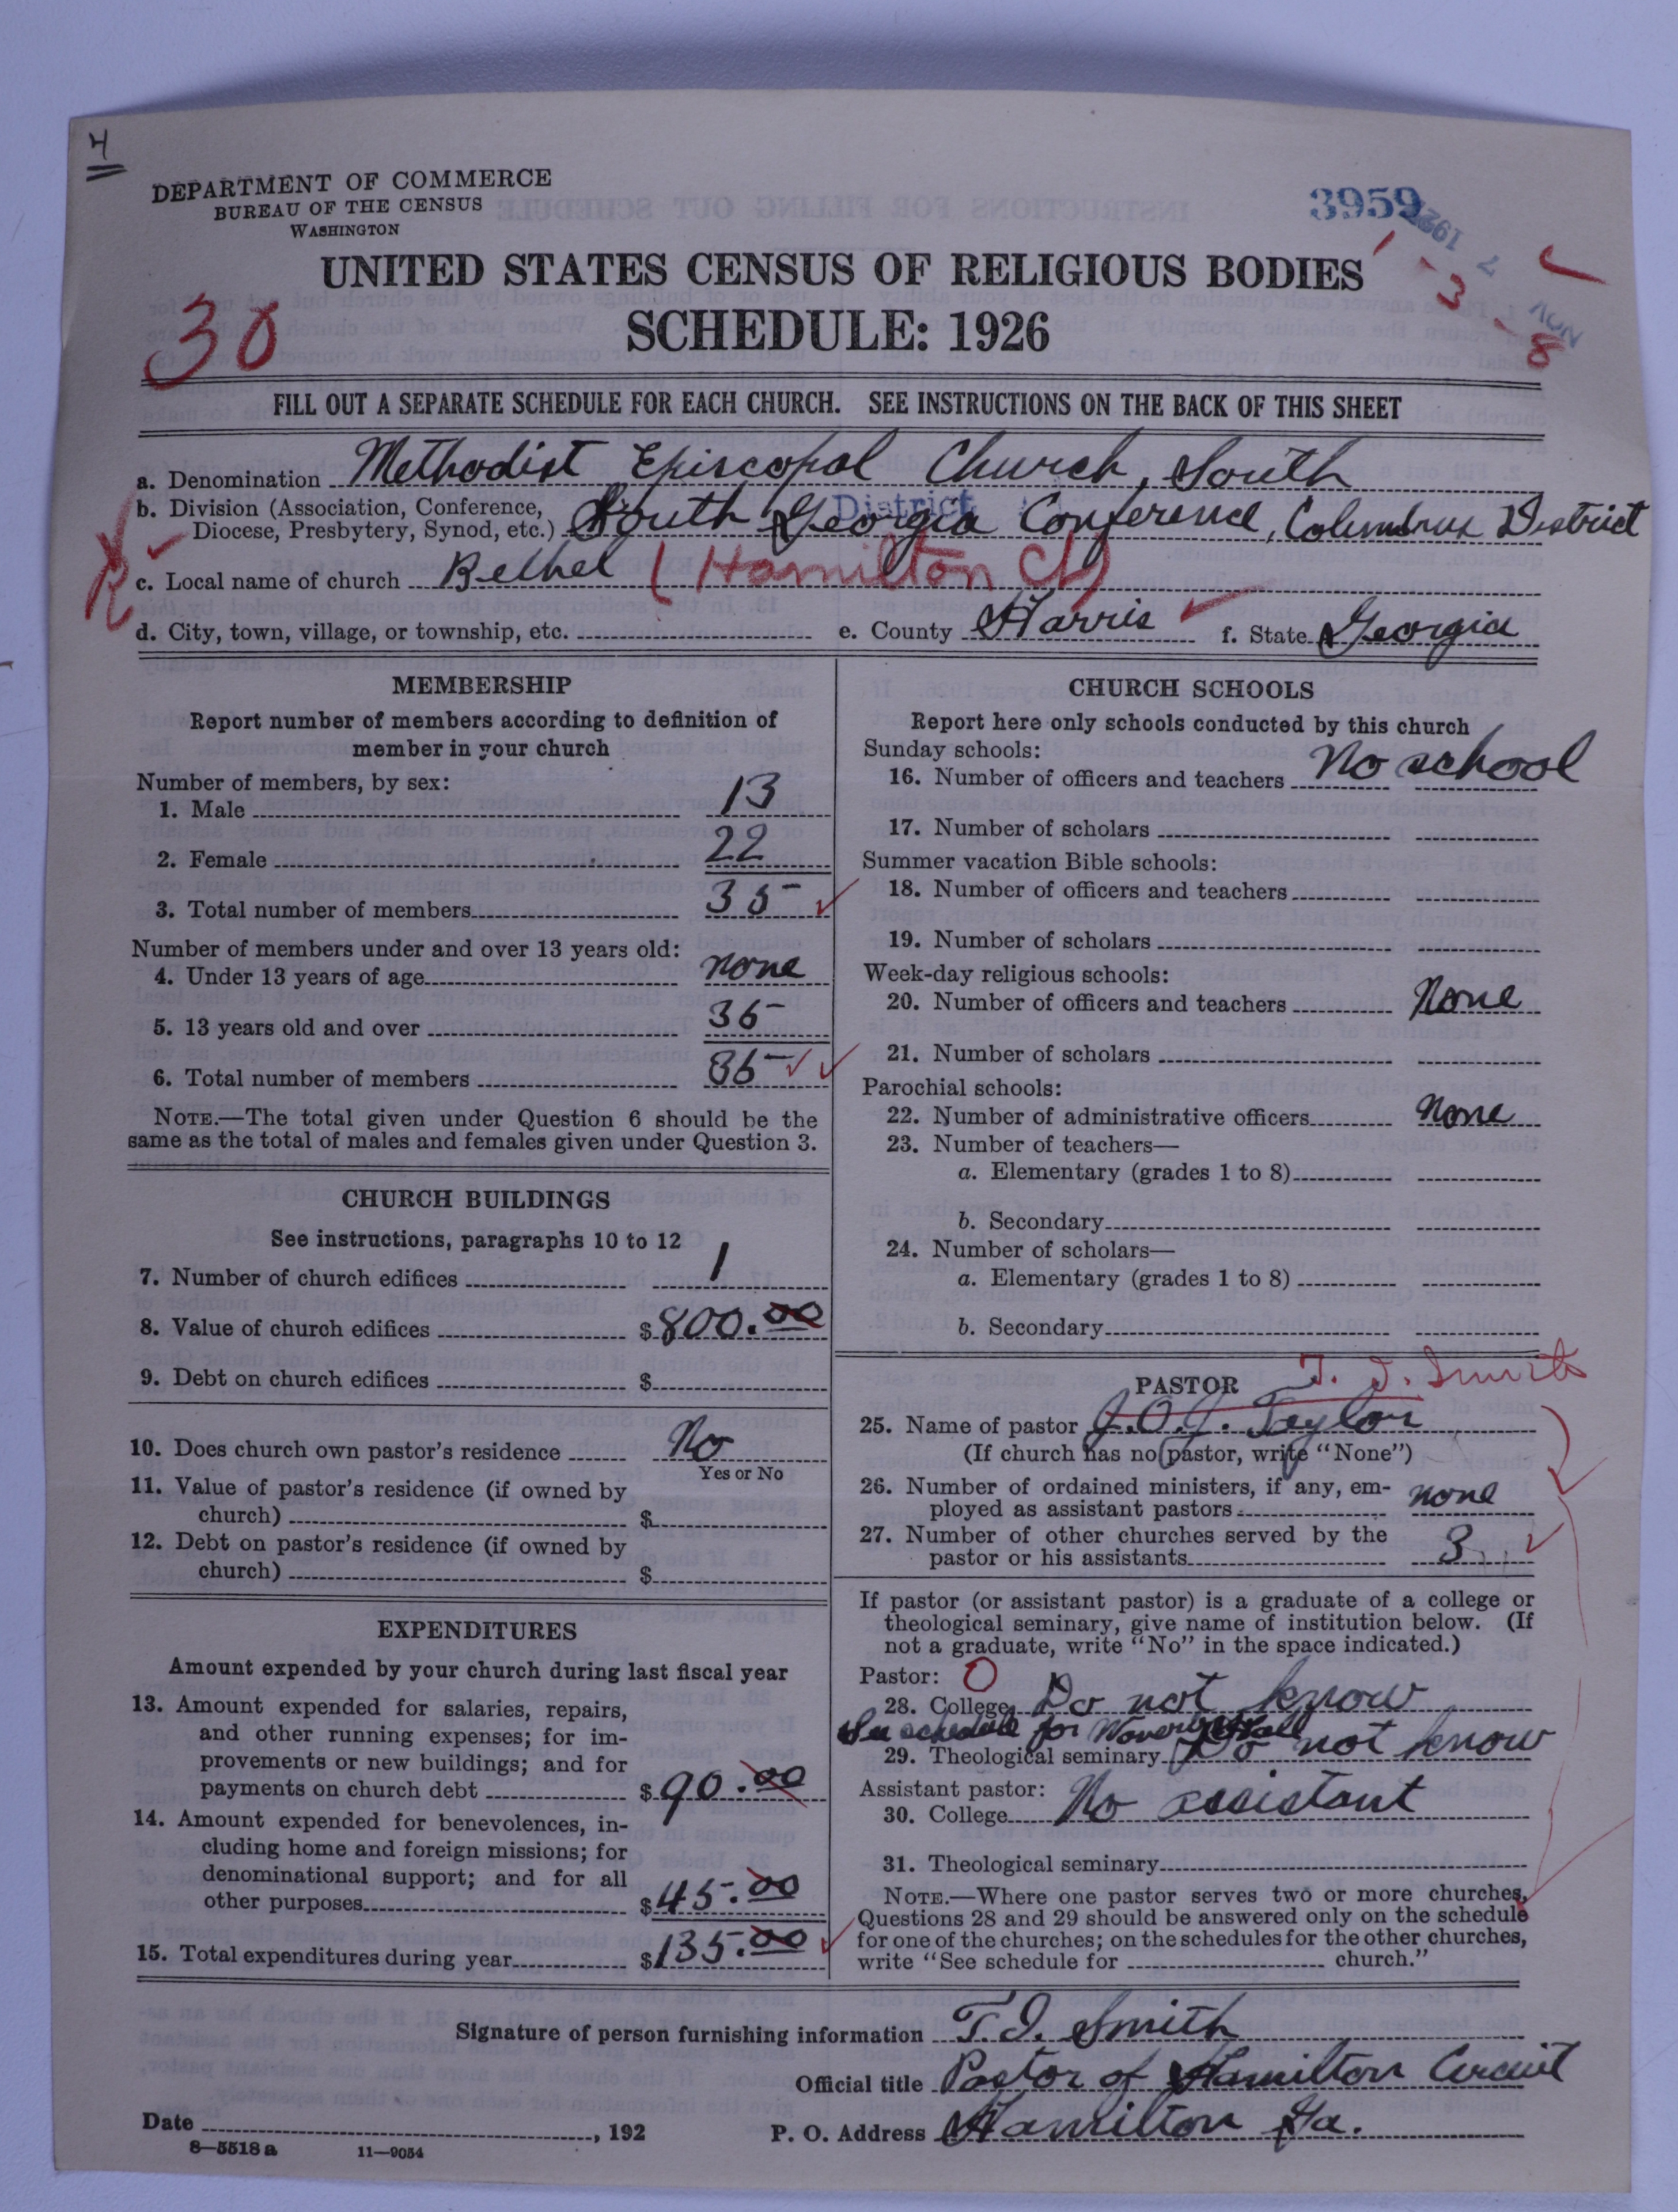 4
DEPARTMENT OF COMMERCE
BUREAU OF THE CENSUS
WASHINGTON
3959
NOV 7 192
1 - 3 - 8
UNITED STATES CENSUS OF RELIGIOUS BODIES
SCHEDULE: 1926
30
FILL OUT A SEPARATE SCHEDULE FOR EACH CHURCH. SEE INSTRUCTIONS ON THE BACK OF THIS SHEET
a. Denomination Methodist Episcopal Church, South
b. Division (Association, Conference,
District
Diocese, Presbytery, Synod, etc.) South Georgia Conference, Columbus District
c. Local name of church Bethel (Hamilton Ch)
d. City, town, village, or township, etc. e. County Harris f. State Georgia
MEMBERSHIP
Report number of members according to definition of
member in your church
Number of members, by sex:
1. Male 13
2. Female 22
3. Total number of members 35
Number of members under and over 13 years old:
4. Under 13 years of age none
5. 13 years old and over 35
6. Total number of members 35
NOTE.—The total given under Question 6 should be the
same as the total of males and females given under Question 3.
CHURCH BUILDINGS
See instructions, paragraphs 10 to 12
7. Number of church edifices 1
8. Value of church edifices $800.00
9. Debt on church edifices $
10. Does church own pastor's residence No
Yes or No
11. Value of pastor's residence (if owned by
church) $
12. Debt on pastor's residence (if owned by
church) $
EXPENDITURES
Amount expended by your church during last fiscal year
13. Amount expended for salaries, repairs,
and other running expenses; for im-
provements or new buildings; and for
payments on church debt $90.00
14. Amount expended for benevolences, in-
cluding home and foreign missions; for
denominational support; and for all
other purposes $45.00
15. Total expenditures during year $135.00
CHURCH SCHOOLS
Report here only schools conducted by this church
Sunday schools:
16. Number of officers and teachers No school
17. Number of scholars
Summer vacation Bible schools:
18. Number of officers and teachers
19. Number of scholars
Week-day religious schools:
20. Number of officers and teachers None
21. Number of scholars
Parochial schools:
22. Number of administrative officers None
23. Number of teachers—
a. Elementary (grades 1 to 8)
b. Secondary
24. Number of scholars—
a. Elementary (grades 1 to 8)
b. Secondary
PASTOR T. I. Smith
25. Name of pastor J.O.J. Taylor
(If church has no pastor, write "None")
26. Number of ordained ministers, if any, em-
ployed as assistant pastors none
27. Number of other churches served by the
pastor or his assistants 3
If pastor (or assistant pastor) is a graduate of a college or
theological seminary, give name of institution below. (If
not a graduate, write "No" in the space indicated.)
Pastor: 0
28. College Do not know
See schedule for Waverly Hall
29. Theological seminary Do not know
Assistant pastor:
30. College No assistant
31. Theological seminary
NOTE.—Where one pastor serves two or more churches,
Questions 28 and 29 should be answered only on the schedule
for one of the churches; on the schedules for the other churches,
write "See schedule for church."
Signature of person furnishing information T. I. Smith
Official title Pastor of Hamilton Circuit
Date , 192 P. O. Address Hamilton Ga.
8—5518 a 11—9054